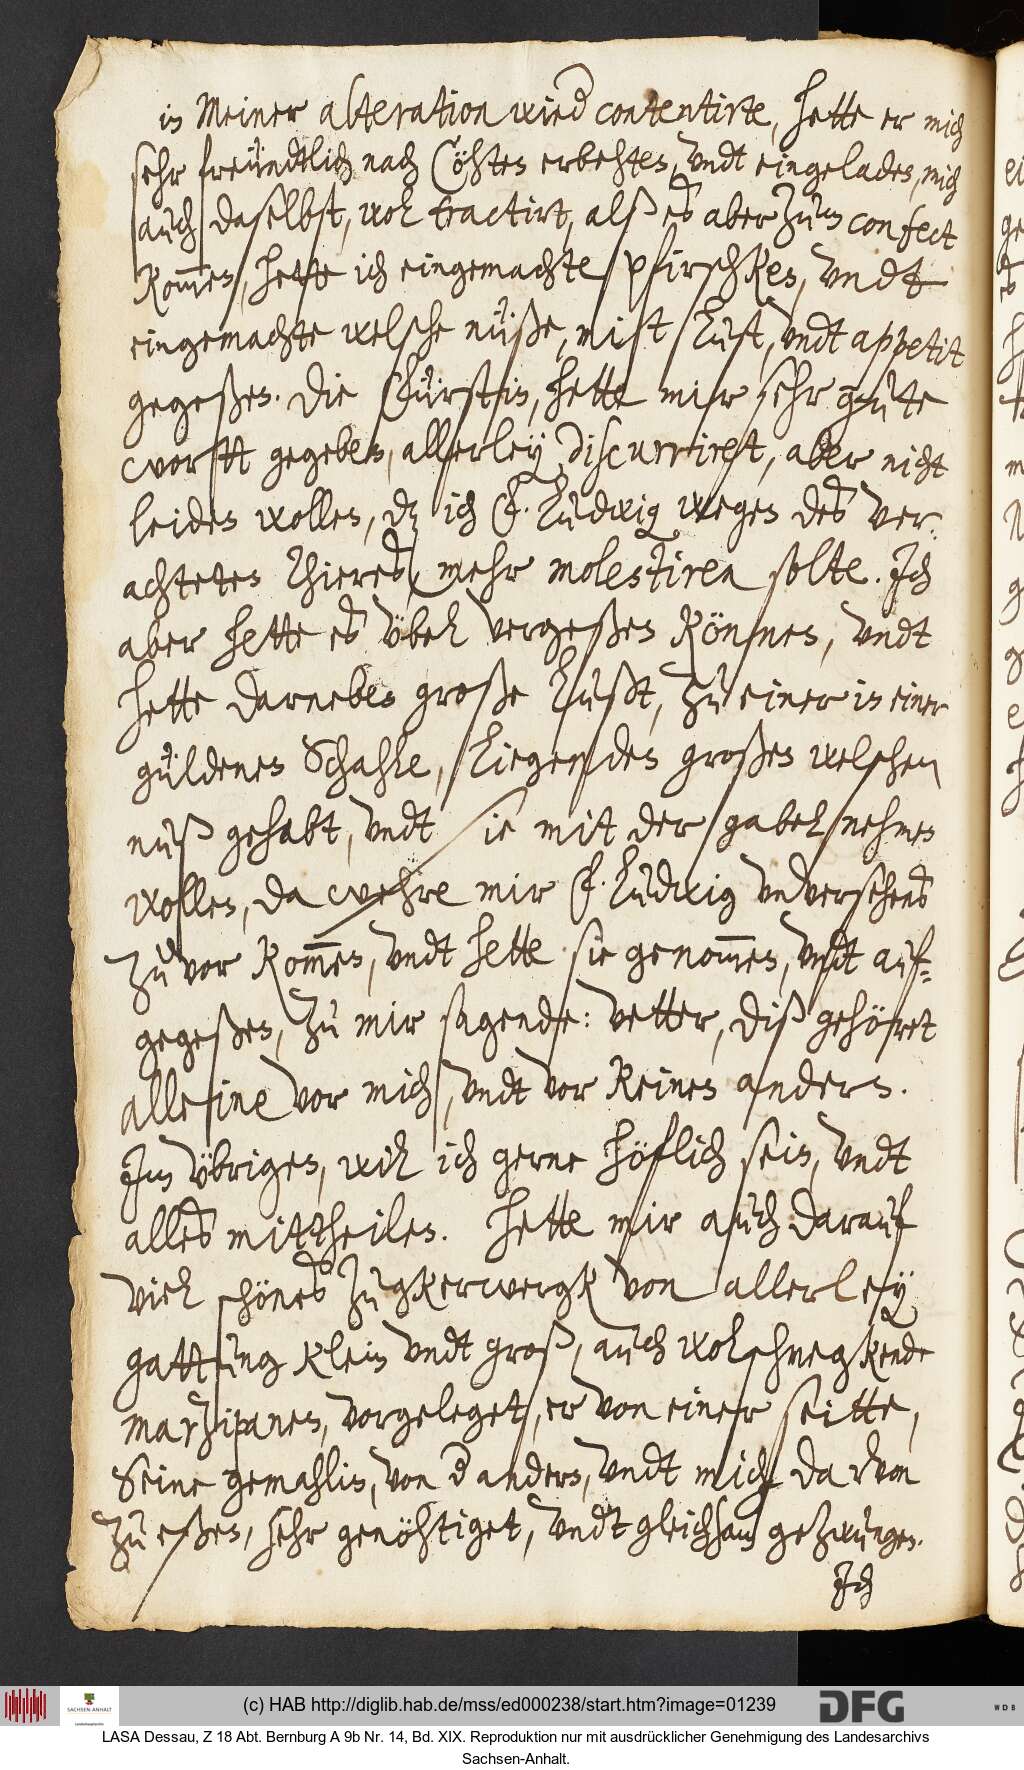 in Meiner alteration wied contentirte, hette er mich
sehr freündtlich nach Cöhten erbehten, undt eingeladen, mich
auch daselbst, wol tractirt, alß es aber zum confect
kom̅en, hette ich eingemachte pfirschken, undt
eingemachte welsche nüße, mit lust, undt appetit
gegeßen. Die Fürstin, hette mir sehr gute
wortt gegeben, allerley discurriret, aber nicht
leiden wollen, dz ich F. Ludwig wegen des ver-
achteten Thieres, mehr molestiren solte. Ich
aber hette es übel vergeßen können, undt
hette darneben große lußt, zu einer in einer
güldenen Schahle, liegenden großen welschen
nuß gehabt, undt sie mit der gabel nehmen
wollen, da wehre mir F. Ludwig unversehens
zu vor kom̅en, undt hette sie genom̅en, undt auf-
gegeßen, zu mir sagende: Vetter, diß gehöret
alleine vor mich, undt vor keinen andern.
Im übrigen, wil ich gerne höflich sein, undt
alles mittheilen. Hette mir auch darauf
viel schönes Zugkerwergk von allerley
gattung klein undt groß, auch wolschmegkende
marzipanen, vorgeleget, er von einer seitte,
Seine gemahlin, von d andern, undt mich darvon
zu eßen, sehr genöhtiget, undt gleichsam gezwungen.
Ich
SACHSEN-ANHALT
(c) HAB http://diglib.hab.de/mss/ed000238/start.htm?image=01239
DFG
WDB
LASA Dessau, Z 18 Abt. Bernburg A 9b Nr. 14, Bd. XIX. Reproduktion nur mit ausdrücklicher Genehmigung des Landesarchivs
Sachsen-Anhalt.